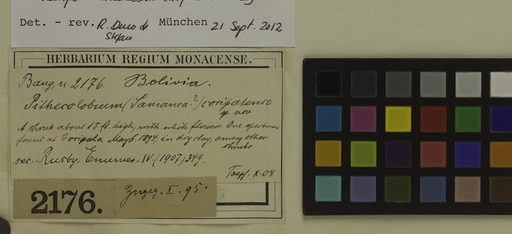 Det. - rev. R. Duno de Stefano München 21 Sept. 2012
HERBARIUM REGIUM MONACENSE.
Bang n. 2176. Bolivia.
Pithecolobium (Samanea?) coripatense
sp. nov.
A shrub about 15 ft. high, with white flowers. One specimen
found at Coripata, May 6. 1894 in dry clay, among other
shrubs
sec. Rusby, Enumer. IV (1907) 349.
Toepf. X.08
2176. Zugeg. I. 95.